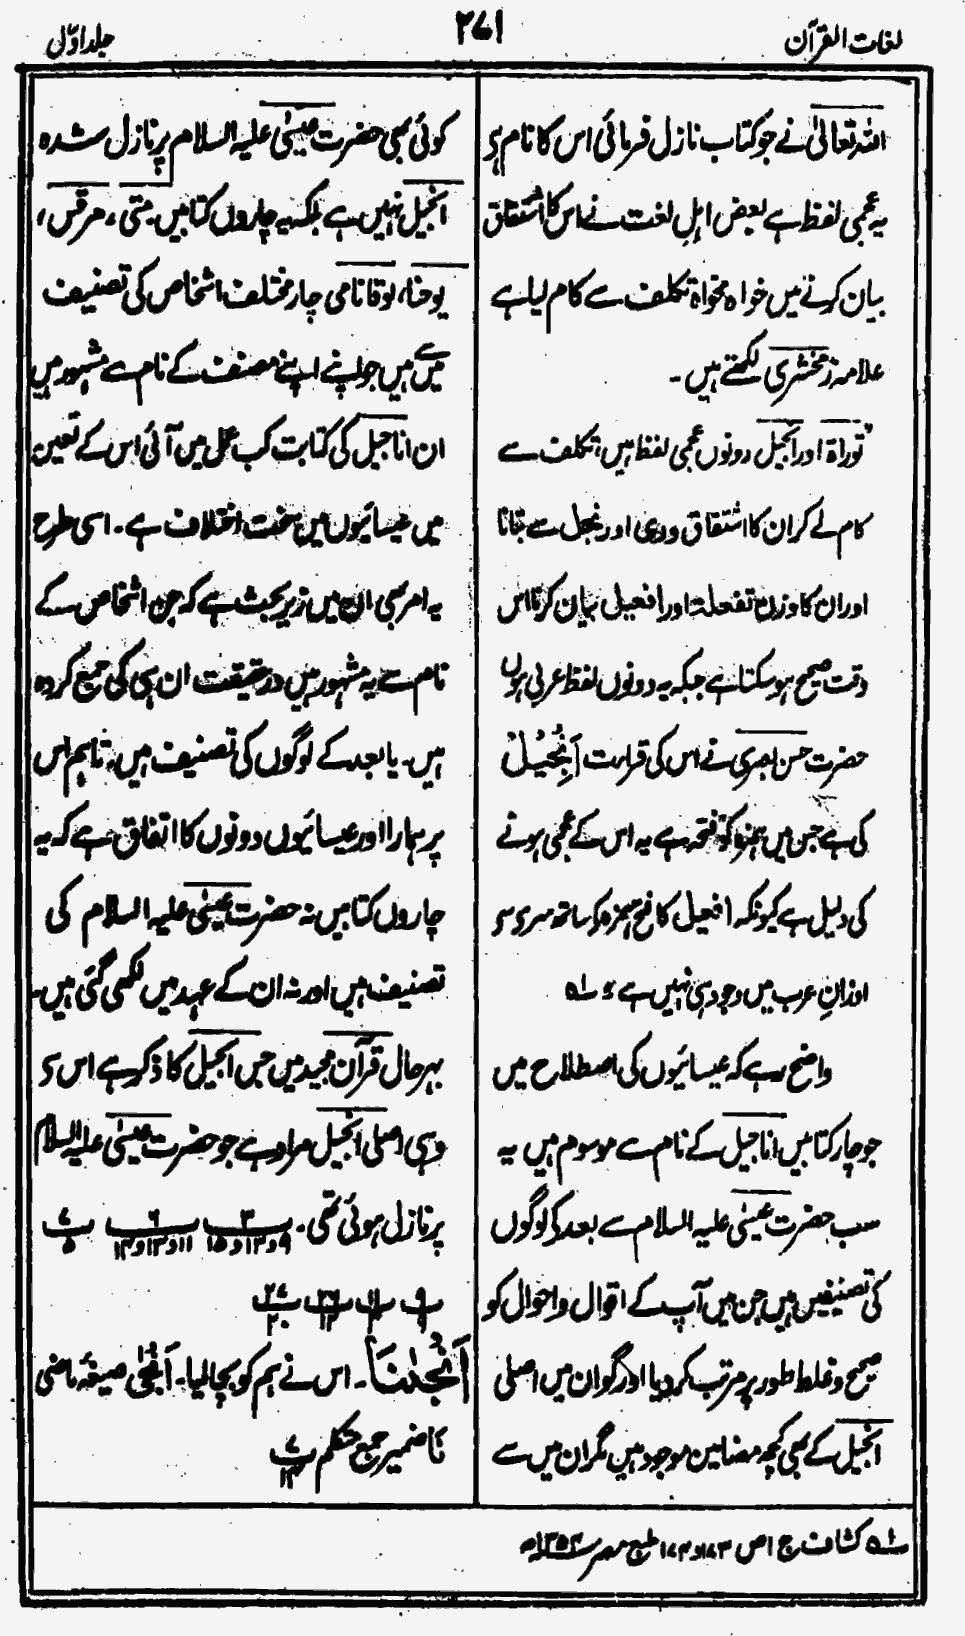 لغات القرآن
۲۷۱
جلد اوّل
اللہ تعالیٰ نے جو کتاب نازل فرمائی اس کا نام ہے
یہ عجمی لفظ ہے بعض اہلِ لغت نے اس کا اشتقاق
بیان کرنے میں خواہ مخواہ تکلف سے کام لیا ہے
علامہ زمخشری لکھتے ہیں۔
توراة اور انجیل دونوں عجمی لفظ ہیں، تکلف سے
کام لے کر ان کا اشتقاق وری اور نجل سے بتانا
اور ان کا وزن تفعلة اور افعیل بیان کرنا اس
وقت صحیح ہو سکتا ہے جبکہ یہ دونوں لفظ عربی ہوں
حضرت حسن بصری نے اس کی قرارت اَنْجِیْلُ
کی ہے جس میں ہمزہ کو فتحہ ہے یہ اس کے عجمی ہونے
کی دلیل ہے کیونکہ افعیل کا فتح ہمزہ کے ساتھ سرے سے
اوزانِ عرب میں وجود ہی نہیں ہے ؤ لہ
واضح رہے کہ عیسائیوں کی اصطلاح میں
جو چار کتابیں اناجیل کے نام سے موسوم ہیں یہ
سب حضرت عیسیٰ علیہ السلام سے بعد کے لوگوں
کی تصنیفیں ہیں جن میں آپ کے اقوال و احوال کو
صحیح و غلط طور پر مرتب کر دیا اور گو ان میں اصلی
انجیل کے بھی کچھ مضامین موجود ہیں مگر ان میں سے
کوئی بھی حضرت عیسیٰ علیہ السلام پر نازل شدہ
انجیل نہیں ہے بلکہ یہ چاروں کتابیں متی، مرقس،
یوحنا، لوقا نامی چار مختلف اشخاص کی تصنیف
میں سے ہیں جو اپنے اپنے مصنف کے نام سے مشہور ہیں
ان اناجیل کی کتابت کب عمل میں آئی اس کے تعین
میں عیسائیوں میں سخت اختلاف ہے۔ اسی طرح
یہ امر بھی ان میں زیر بحث ہے کہ جن اشخاص کے
نام سے یہ مشہور ہیں درحقیقت ان ہی کی جمع کردہ
ہیں۔ یا بعد کے لوگوں کی تصنیف ہیں، تاہم اس
پر ہمارا اور عیسائیوں دونوں کا اتفاق ہے کہ یہ
چاروں کتابیں نہ حضرت عیسیٰ علیہ السلام کی
تصنیف ہیں اور نہ ان کے عہد میں لکھی گئی ہیں۔
بہر حال قرآن مجید میں جس انجیل کا ذکر ہے اس سے
وہی اصلی انجیل مراد ہے جو حضرت عیسیٰ علیہ السلام
پر نازل ہوئی تھی۔ پ۳ ۹ و ۱۳ و ۱۵ پ۶ ۱۱ و ۱۳ و ۱۴ پ۷ ۵
پ۹ ۹ پ۱۱ پ۲۶ ۱۲ پ۲۷ ۲۰
اَنْجٰىنَا۔ اس نے ہم کو بچا لیا۔ اَنْجٰی صیغہ ماضی
نَا ضمیر جمع متکلم پ۷ ۱۴
لہ کشاف ج ۱ ص ۱۷۳ و ۱۷۴ طبع مصر ۱۳۵۴ھ